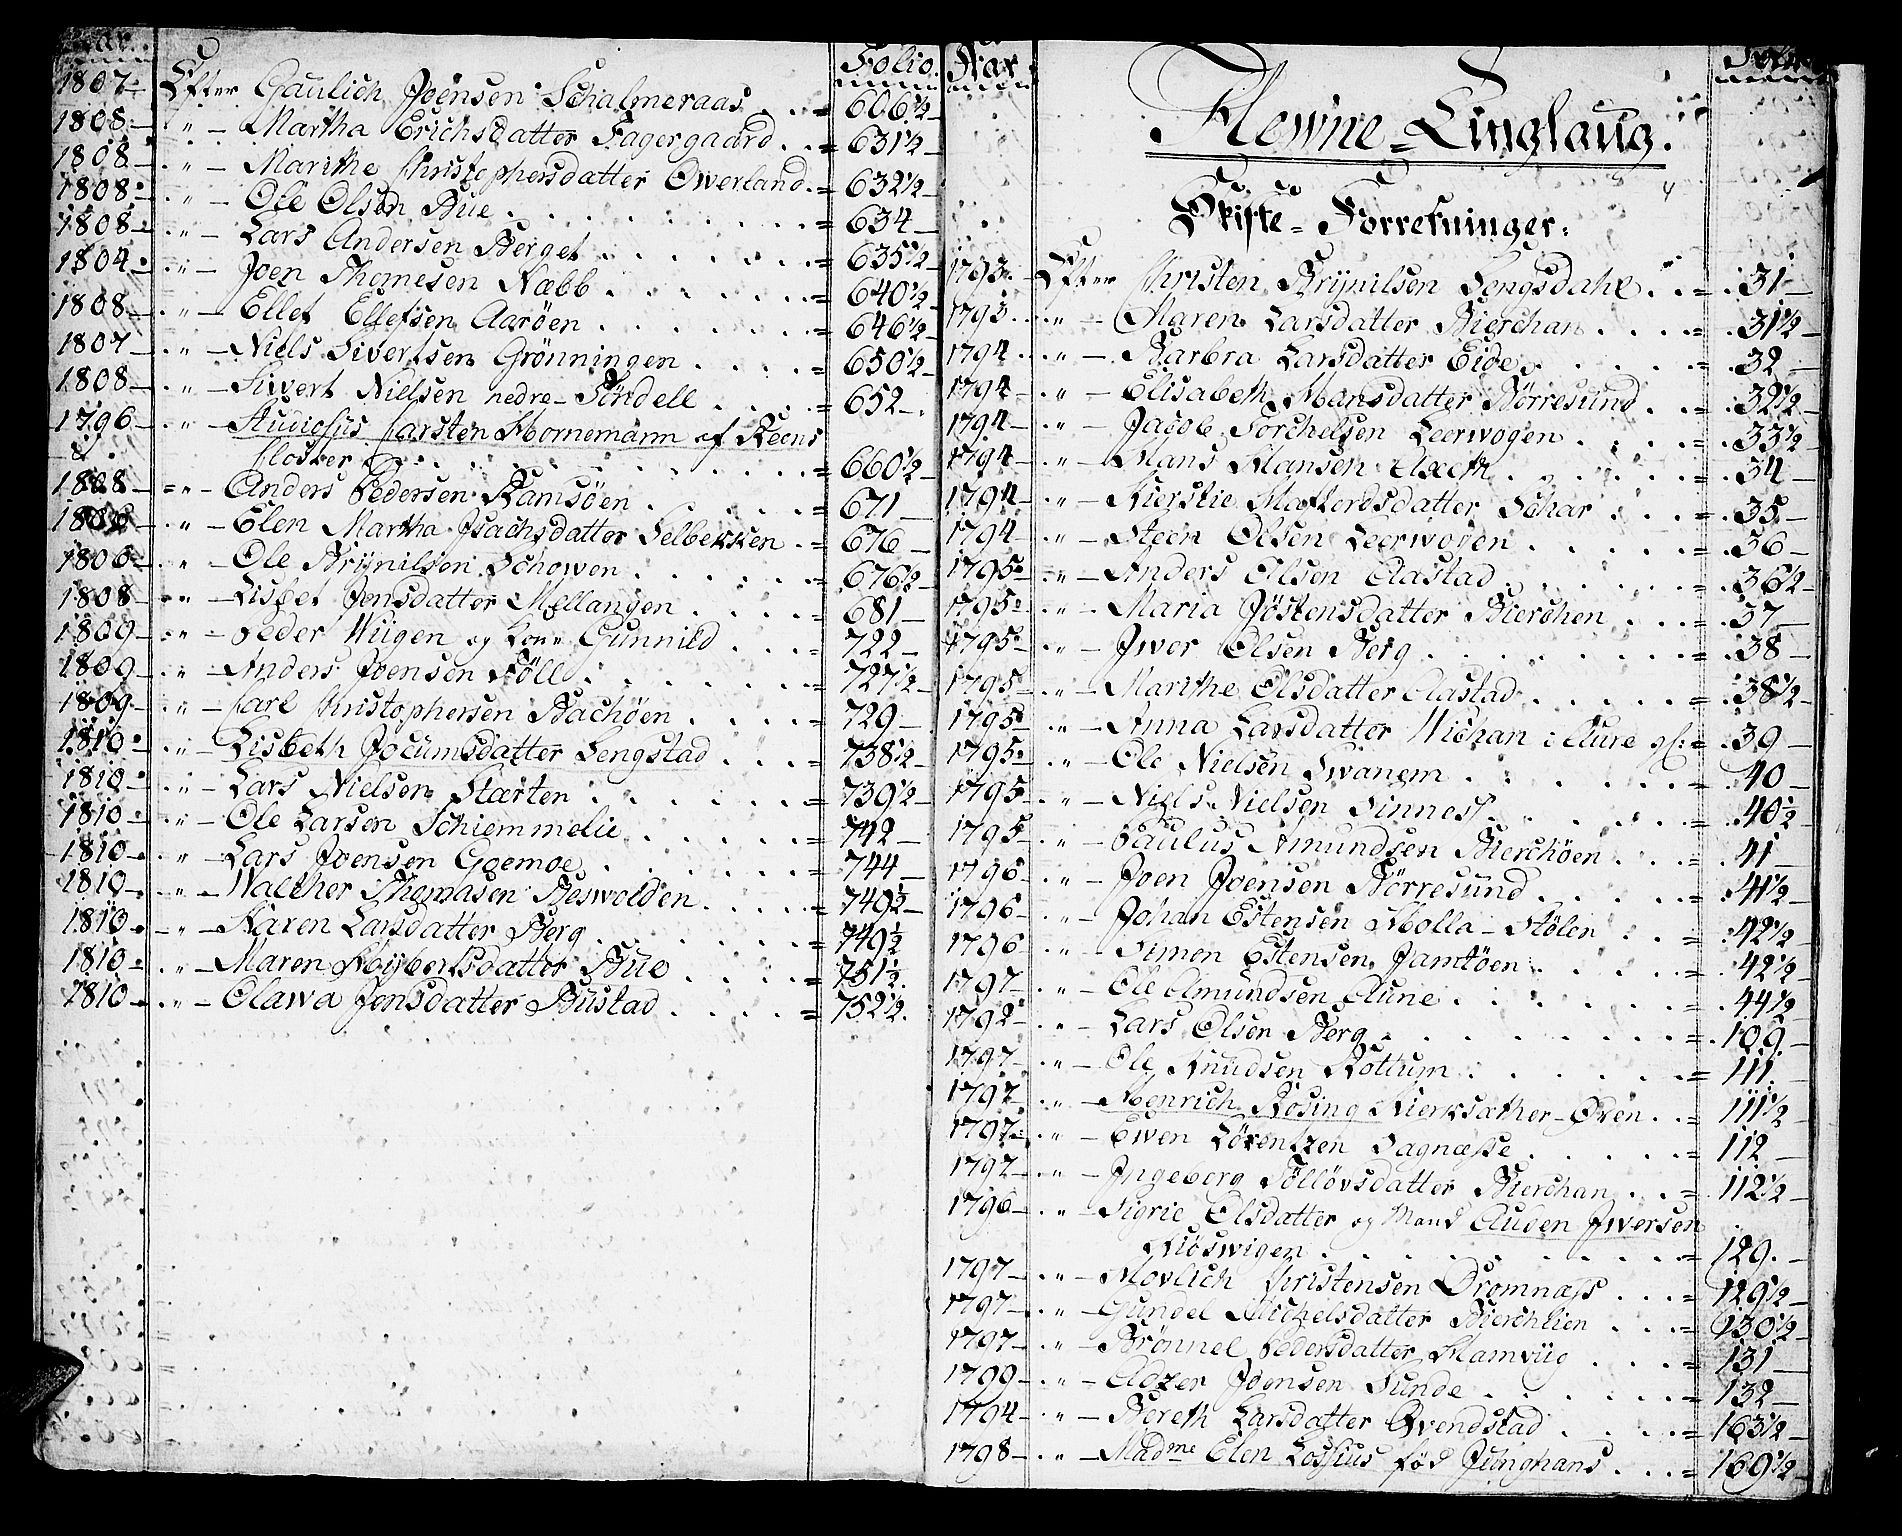 Aar. Folio
1807 Efter Gaulich Joensen Schalmeraas = 606½
1808 " Martha Erichsdatter Fagergaard = 631½
1808 " Marithe Christophersdatter Owerland = 632½
1808 " Ole Olsen Bue = 634
1808 " Lars Andersen Berget = 635½
1804 " Joen Thomesen Næbb = 640½
1808 " Ellef Ellefsen Aarøen = 646½
1807 " Niels Sivertsen Grønningen = 650½
1808 " Sivert Nielsen nedre Sündell = 652
1796 " Studiosus Carsten Hornemann af Reens
Closter = 660½
1808 " Anders Pedersen Ramsøen = 671
" Elen Martha Isachsdatter Selbekken = 676
1806 " Ole Brynilsen Schowen = 676½
1808 " Lisbet Jensdatter Mellangen = 681
1809 " Peder Wiigen og Kone Gunnild 722
1809 " Anders Joensen Föll = 727½
1809 " Carl Christophersen Bachöen = 729
1810 " Lisbeth Jocumsdatter Lengstad = 738½
1810 " Lars Nielsen Stærten = 739½
1810 " Ole Larsen Schiemmelie = 742
1810 " Lars Joensen Goemoe = 744
1810 " Walther Thomasen Beswolden = 749½
1810 " Karen Larsdatter Berg = 749½
1810 " Maren datter Bue = 751½
1810 " Olawa Jensdatter Bustad = 752½
Aar Folio
Hewne-Tinglaug.
Skifte-Forretninger:
1793 Efter Christen Brynilsen Lengsdahl = 31
1793 " Maren Larsdatter Bierchan = 31½
1794 " Barbra Larsdatter Eide = 32
1794 " Elisabeth Mansdatter Börresund = 32½
1794 " Jacob Torchelsen Leerwogen = 33½
1794 " Mans Hansen = 34
1794 " Kierstie datter Schar = 35
1794 " Steen Olsen Leerwogen = 36
1795 " Anders Olsen Aastad = 36½
1795 " Maria Jöstensdatter Bierchen = 37
1795 " Iwer Olsen Berg = 38
1795 " Marithe Olsdatter Aastad = 38½
1795 " Anna Larsdatter Wichan i Aure gl: = 39
1795 " Ole Nielsen Swanem = 40
1795 " Niels Nielsen Sinnes = 40½
1795 " Paulus Amundsen Bierchöen = 41
1796 " Joen Joensen Börresund = 41½
1796 " Johan Estensen Molla-Stölen = 42½
1796 " Simon Estensen Jamtöen = 42½
1797 " Ole Amundsen Aune = 44½
1792 " Lars Olsen Berg = 109
1797 " Ole Knudsen Rottum = 111
1797 " Henrich Rosing Kierksæther-Øren = 111½
1797 " Ewen Lörentzen Sagnæsse = 112
1797 " Ingeborg Töllövsdatter Bierchan = 112½
1796 " Sigrie Olsdatter og Mand Auden Iwersen
Kiöswigen = 129
1797 " Movlich Christensen Dromnæss = 129½
1797 " Gundel Michelsdatter Bierchlien = 130½
1797 " Brönnel Pedersdatter Hamvüg = 131
1799 " Adzer Joensen Sunde = 132
1794 " Bereth Larsdatter Qvendstad = 163½
1798 " Madme Elen Lossius föd Junghans = 169½